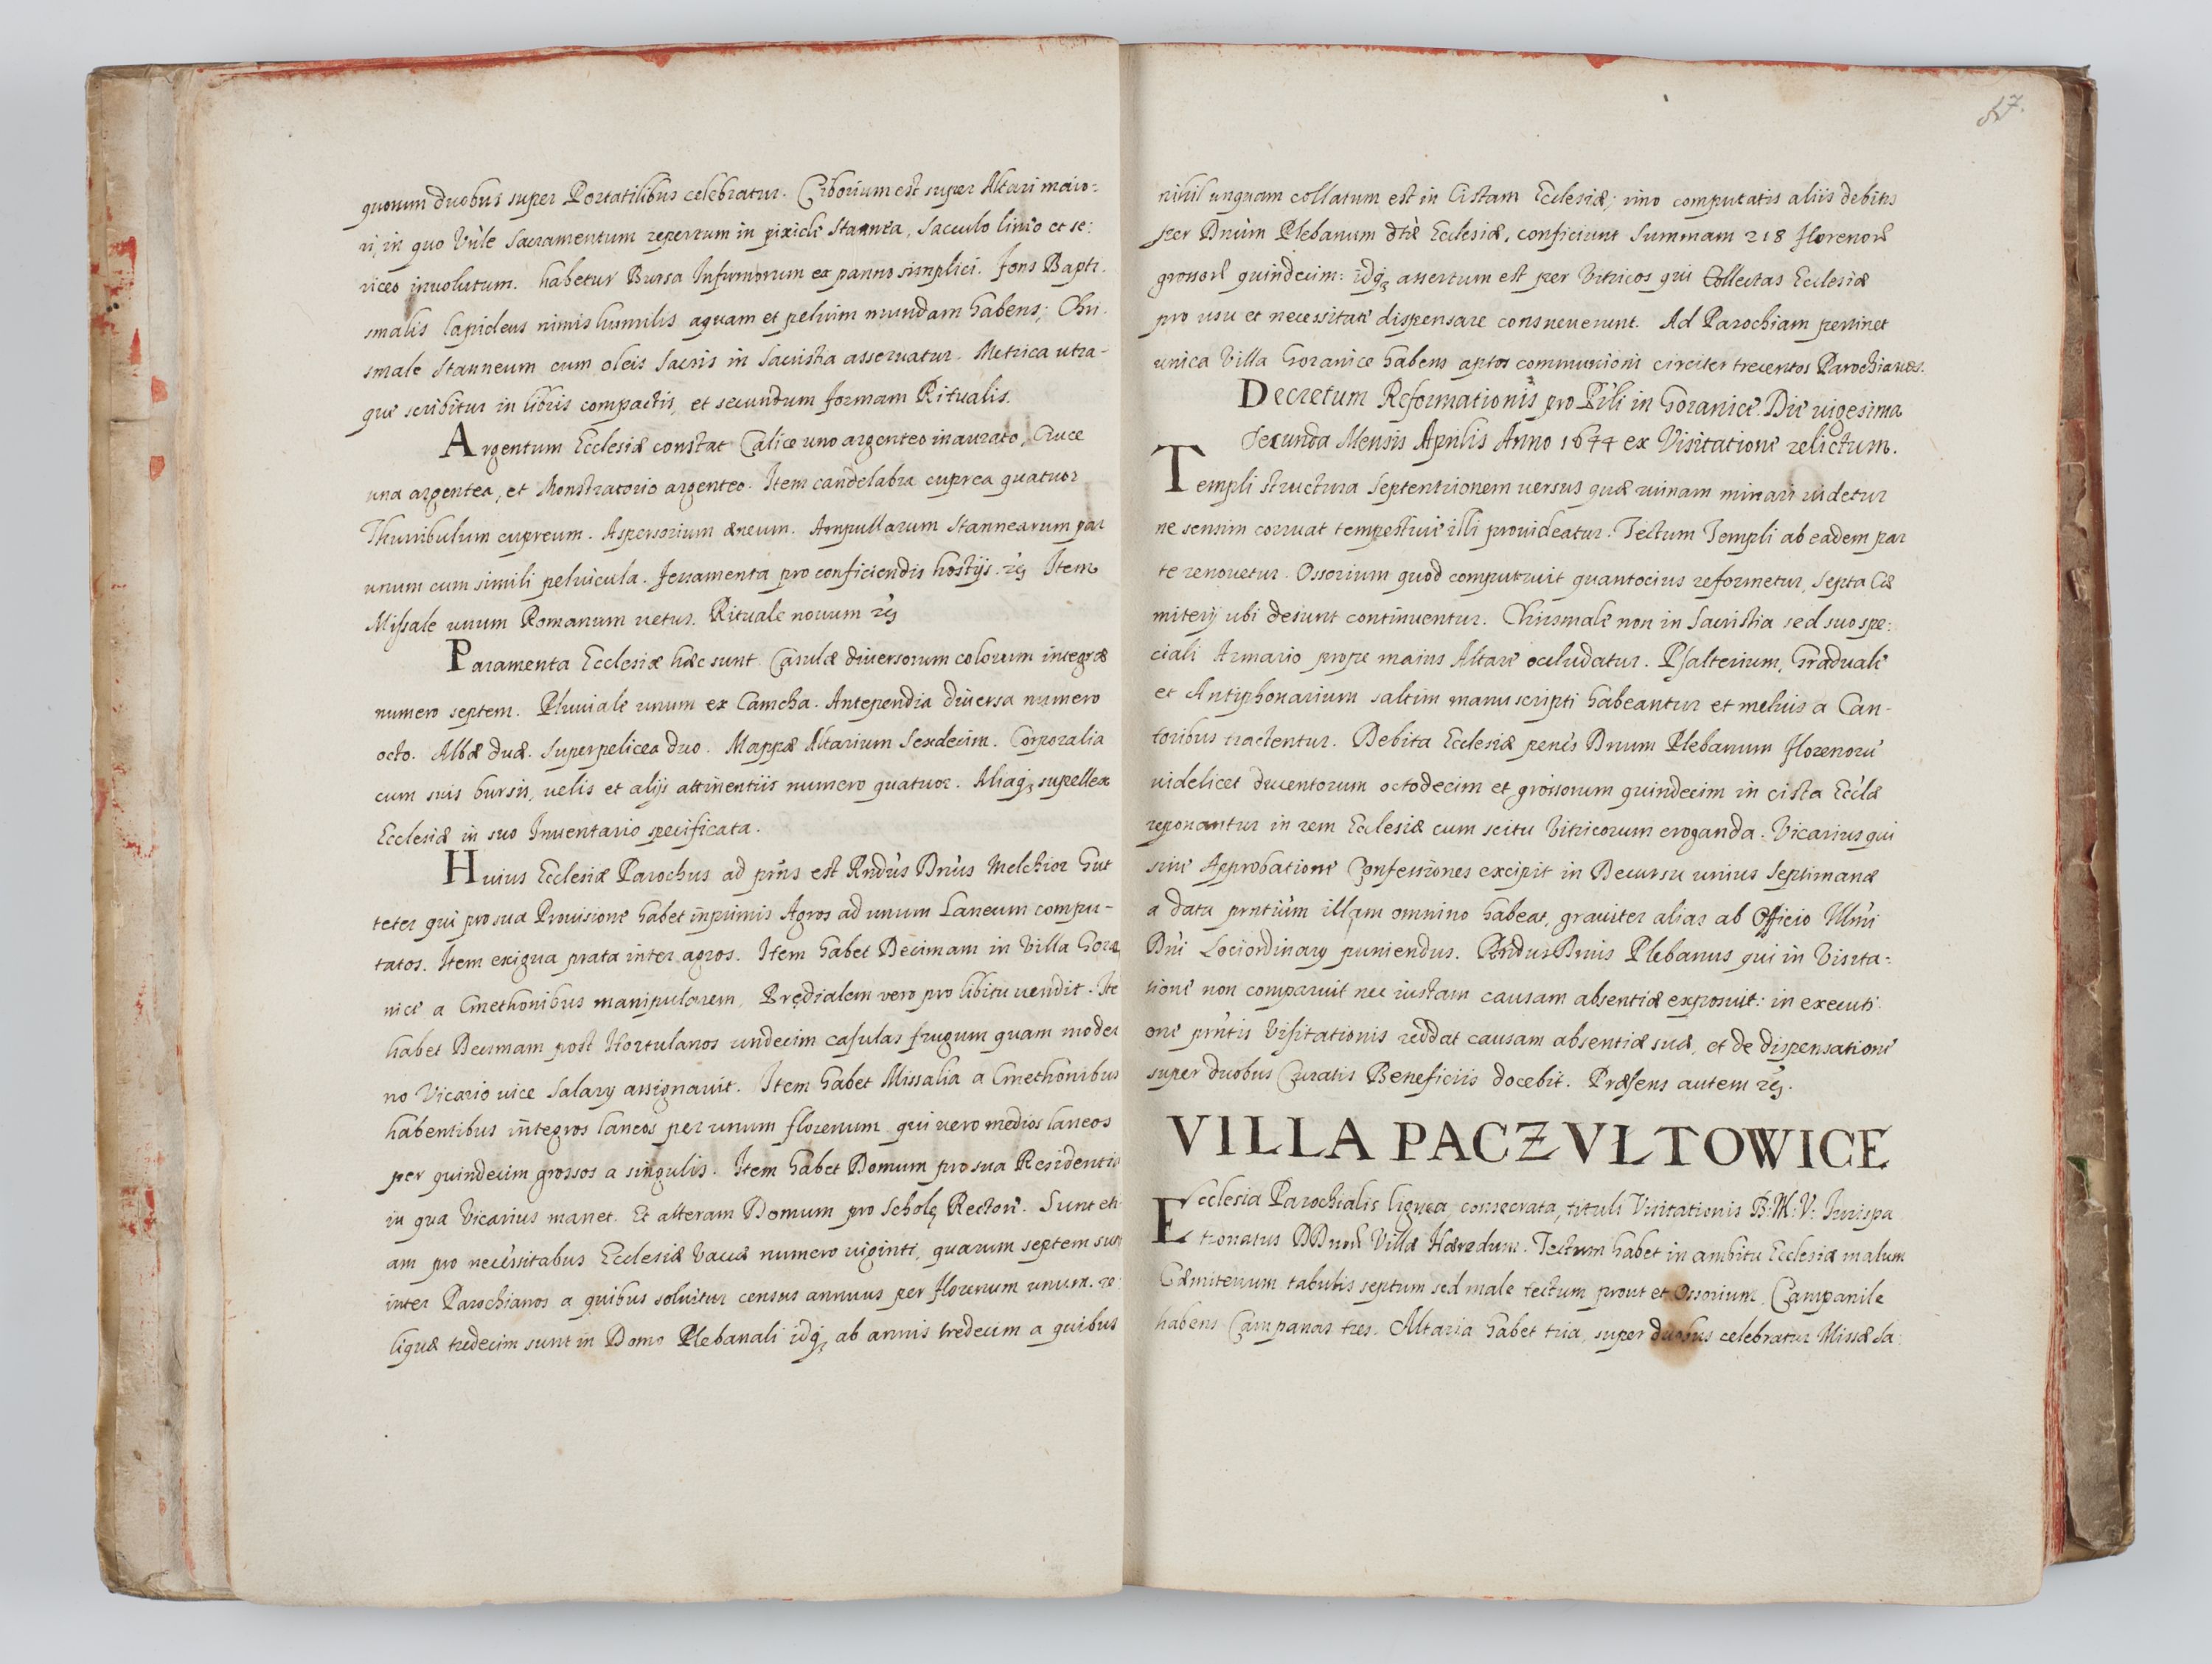 quorum duobus super Portatilibus celebratur. Ciborium est super Altari maio-
ri, in quo Vn̄le Sacramentum repertum in pixide Stannea, Sacculo lineo et se:
riceo inuolutum. habetur Bursa Infirmorum ex panno simplici. Fons Bapti.
smalis lapideus nimis humilis aquam et peluim mundam habens; Chri.
smale Stanneum cum oleis Sacris in Sacristia asseruatur. Metrica utra-
que scribitur in libris compactis, et secundum formam Ritualis.
Argentum Ecclesiæ constat Calice uno argenteo inaurato, Cruce
una argentea, et Monstratorio argenteo. Item candelabra cuprea quatuor
Thuribulum cupreum. Aspersorium æneum. Ampullarum Stannearum par
unum cum simili peluicula. Ferramenta pro conficiendis hostijs. rc̄ Item
Missale unum Romanum uetus. Rituale nouum rc̄
Paramenta Ecclesiæ hæc sunt Casulæ diuersorum colorum integræ
numero septem. Pluuiale unum ex Camcha. Antependia diuersa numero
octo. Albæ duæ. Superpelicea duo. Mappæ Altarium Sexdecim. Corporalia
cum suis bursis, uelis et alijs attinentiis numero quatuor. Aliaq; supellex
Ecclesiæ in suo Inuentario specificata.
Huius Ecclesiæ Parochus ad prn̄s est Rnd̀us Dǹus Melchior Gut
teter qui pro sua Prouisione habet inprimis Agros ad unum Laneum compu-
tatos. Item exigua prata inter agros. Item habet Decimam in Villa Gora
nice a Cmethonibus manipularem, Prędialem vero pro libitu uendit. Ite
habet Decimam post Hortulanos undecim casulas frugum quam moder
no Vicario uice Salary assignauit. Item habet Missalia a Cmethonibus
habentibus integros laneos per unum florenum qui uero medios laneos
per quindecim grossos a singulis. Item habet Domum pro sua Residentia
in qua Vicarius manet. Et alteram Domum pro Scholę Rectore. Sunt eti
am pro necessitabus Ecclesiæ Vaccæ numero uiginti, quarum septem sun
inter Parochianos a quibus soluitur census annuus per florenum unum. re
liquæ tredecim sunt in Domo Plebanali idq; ab annis tredecim a quibus
57.
nihil unquam collatum est in Cistam Ecclesiæ; imo computatis aliis debitis
per Dnùm Plebanum dtæ̀ Ecclesiæ, conficiunt Summam 218 florenorū
grossorū quindecim: idq; assertum est per Vitricos qui Collectas Ecclesiæ
pro usu et necessitate dispensare consueuerunt. Ad Parochiam pertinet
unica Villa Goranice habens aptos communioni circiter trecentos Parochianos.
Decretum Reformationis pro Prl̀i in Goranice. Die uigesima
Secunda Mensis Aprilis Anno 1644 ex Visitatione relictum.
Templi structura Septentrionem uersus quæ ruinam minari uidetur
ne sensim corruat tempestiue illi prouideatur. Tectum Templi ab eadem par
te renouetur. Ossorium quod computruit quantocius reformetur, Septa Cæ
mitery ubi desunt continuentur. Chrismale non in Sacristia sed suo spe:
ciali Armario prope maius Altare occludatur. Psalterium, Graduale
et Antiphonarium saltim manuscripti habeantur et melius a Can-
toribus tractentur. Debita Ecclesiæ penes Dnum Plebanum florenorū
uidelicet ducentorum octodecim et grossorum quindecim in cista Eccl̀æ
reponantur in rem Ecclesiæ cum scitu Vitricorum eroganda. Vicarius qui
sine Approbatione Confessiones excipit in Decursu unius Septimanæ
a data prntiùm illam omnino habeat, grauiter alias ab Officio Illm̀i
Dǹi Lociordinary puniendus. RndusDnus Plebanus qui in Visita-
tione non comparuit nec iustam causam absentiæ exposuit: in executi
one prǹtis Visitationis reddat causam absentiæ suæ, et de dispensatione
super duobus Curatis Beneficiis docebit. Præsens autem rc̄.
VILLA PACZVŁTOWICE
Ecclesia Parochialis lignea, consecrata, tituli Visitationis B: M: V: Iurispa
tronatus DDnorū Villæ Hæredum. Tectum habet in ambitu Ecclesiæ malum
Cæmiterium tabulis septum sed male tectum prout et Ossorium. Campanile
habens Campanas tres. Altaria habet tria, super duobus celebratur Missæ Sa: